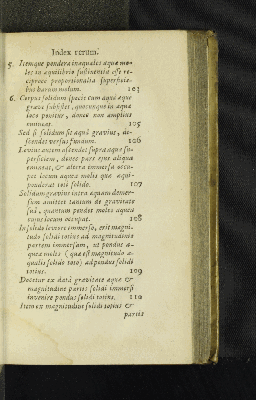 Index rerum.
5. Itemque pondera inæqualis aquæ mo-
les in æquilibrio sustinentia esse re-
ciproce proportionalia superficie-
bus harum molum. 103
6. Corpus solidum specie cum aqua æque
grave subsistet, quocunque in aquæ
loco ponitur, donec non amplius
moveat. 105
Sed si solidum sit aquâ gravius, de-
scendet versus fundum. 106
Levius autem ascendet supra aquæ su-
perficiem, donec pars ejus aliqua
emineat, & altera immersa occu-
pet locum aquea molis quæ æqui-
ponderat toti solido. 107
Solidum gravius intra aquam demer-
sum amittet tantum de gravitate
suâ, quantum pendet moles aquea
cujus locum occupat. 108
In solido leviore immerso, erit magni-
tudo solidi totius ad magnitudinem
partem immersam, ut pondus a-
queæ molis (quæ est magnitudo æ-
qualis solido toto) ad pondus solidi
totius. 109
Docetur ex datâ gravitate aquæ &
magnitudine partis solidi immersi
invenire pondus solidi totius. 110
Item ex magnitudine solidi totius &
partis